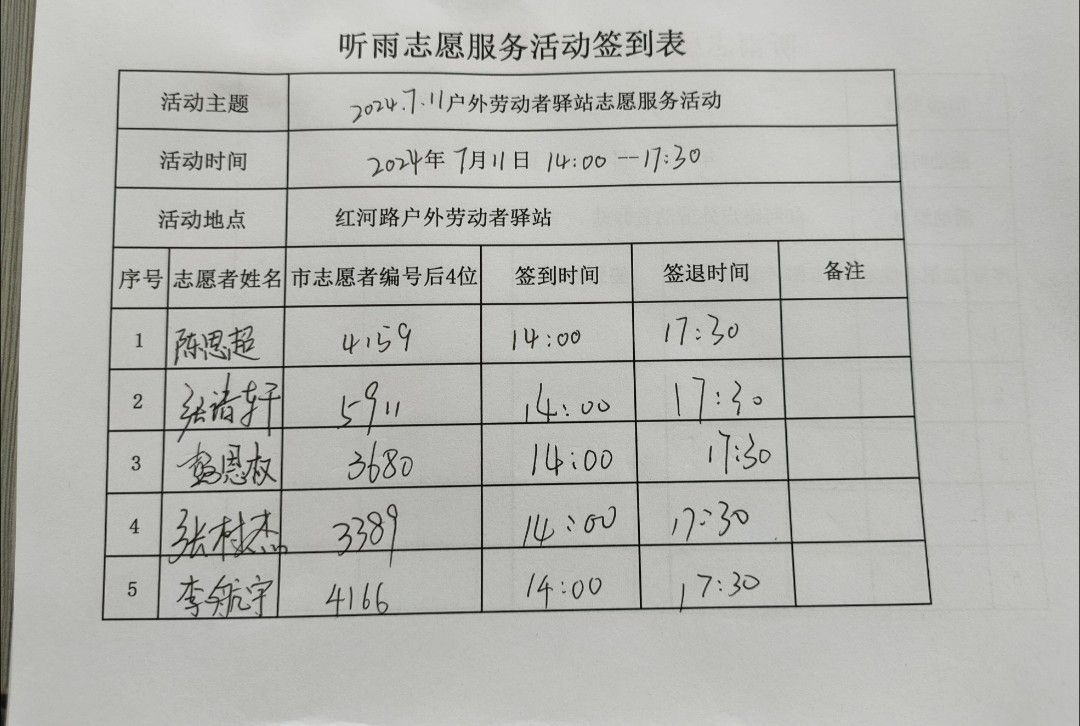 听雨志愿服务活动签到表
活动主题 2024.7.11户外劳动者驿站志愿服务活动
活动时间 2024年7月11日 14:00--17:30
活动地点 红河路户外劳动者驿站
序号 志愿者姓名 市志愿者编号后4位 签到时间 签退时间 备注
1 陈思超 4159 14:00 17:30
2 张诸轩 5911 14:00 17:30
3 彭恩权 3680 14:00 17:30
4 张树杰 3389 14:00 17:30
5 李航宇 4166 14:00 17:30